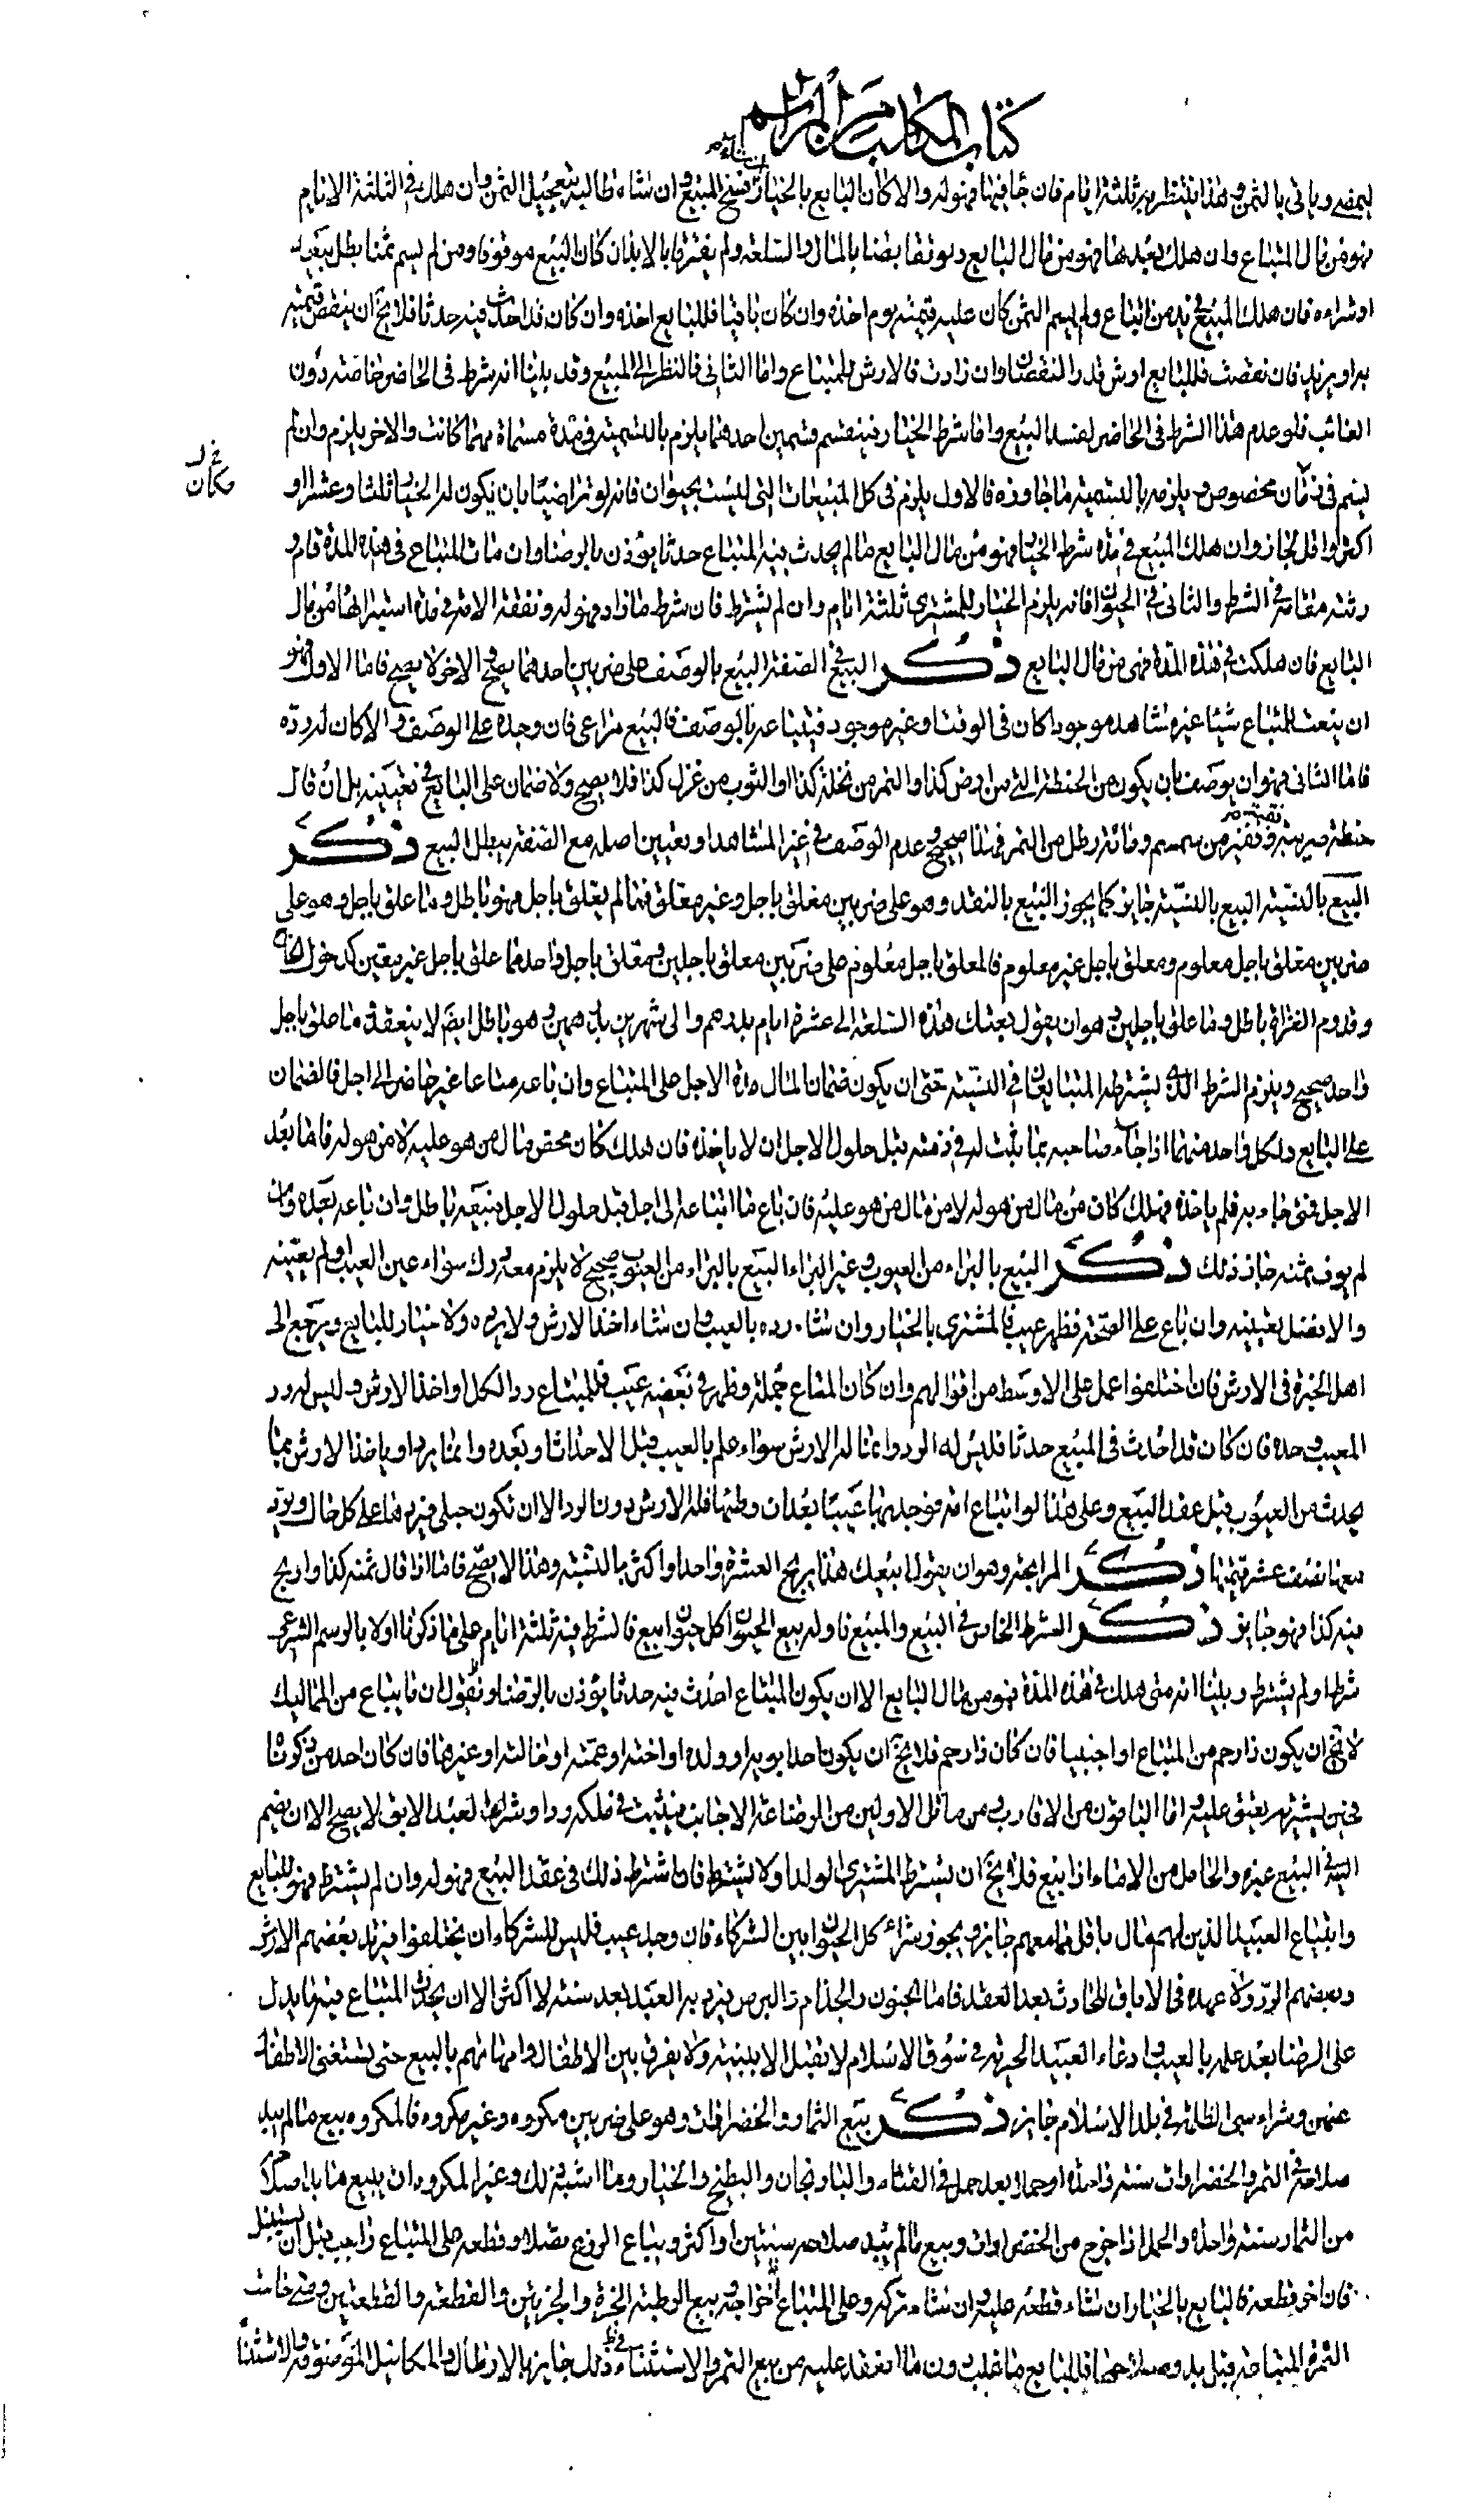 كتاب المكاسب من المراسم
ليمضى وياتى بالثمن فهذا ينتظر به ثلثة ايام فان جا فيها فهو له والا كان البايع بالخيار ان شاء فسخ المبيع وان شاء طالبه بتعجيل الثمن وان هلك فى الثلثة الايام
فهو من مال المبتاع وان هلك بعدها فهو من مال البايع ولو تقابضا بالمال والسلعة ولم يفترقا بالابدان كان البيع موقوفا ومن لم يسم ثمنا بطل بيعه
او شراءه فان هلك المبيع فى يد من ابتاع ولم يسم الثمن كان عليه قيمته يوم اخذه وان كان باقيا فللبايع اخذه وان كان قد احدث فيه حدثا فلا يخ ان ينقص قيمته
به او يزيد فان نقصت فللبايع ارش قدر النقصان وان زادت فالارش للمبتاع واما الثانى فالنظر الى المبيع وقد بينا انه شرط فى الحاضر خاصة دون
الغائب فلو عدم هذا الشرط فى الحاضر لفسد البيع واما شرط الخيار فينقسم قسمين احدهما يلزم بالتسمية فى مدة مسماة مهما كانت والاخر يلزم وان لم
يسم فى زمان مخصوص ويلزم بالتسمية ما جاوزه فالاول يلزم فى كل المبيعات التى ليست بحيوان فانه لو تراضيا بان يكون له الخيار ثلثا وعشرا او
نخ ل مكان
اكثر واقل لجاز وان هلك المبيع فى مدة شرط الخيار فهو من مال البايع ما لم يحدث فيه المبتاع حدثا يؤذن بالرضا وان مات المبتاع فى هذه المدة قام و
رثته مقامه فى الشرط والثانى فى الحيوان فانه يلزم الخيار للمشترى ثلثة ايام وان لم يشترط فان شرط ما زاد فهو له ونفقة الامة فى مدة استبرائها من مال
البايع فان هلكت فى هذه المدة فهى من مال البايع ذكر البيع فى الصفة البيع بالوصف على ضربين احدهما يصح والاخر لا يصح فاما الاول فهو
ان ينعت للمبتاع شيئا غير مشاهد موجودا كان فى الوقت او غير موجود فيبتاعه بالوصف فالبيع مراعى فان وجده على الوصف والا كان له رده
فاما الثانى فهو ان يوصف بان يكون من الحنطة التى من ارض كذا والتمر من نخلة كذا او الثوب من غزل كذا فلا يصح ولا ضمان على البايع فى تعيينه بل ان قال
حنطة صريبة وقفيز من سمسم ومائة رطل من التمر فهذا صحيح وعدم الوصف فى غير المشاهد او تعيين اصله مع الصفة يبطل البيع ذكر
البيع بالنسية البيع بالنسية جايز كما يجوز البيع بالنقد وهو على ضربين معلق باجل وغير معلق فما لم يعلق باجل فهو باطل وما علق باجل وهو على
ضربين معلق باجل معلوم ومعلق باجل غير معلوم فالمعلق باجل معلوم على ضربين معلق باجلين ومعلق باجل واحد فما علق باجل غير معين كدخول الحاج
وقدوم الغزاة باطل وما علق باجلين وهو ان يقول بعتك هذه السلعة الى عشرة ايام بدرهم والى شهرين بدرهمين وهو باطل ايض لا ينعقد وما علق باجل
واحد صحيح ويلزم الشرط الذى يشترطه المتبايعان فى النسية حتى ان يكون ضمان المال مدة الاجل على المبتاع وان باعه متاعا غير حاضر الى اجل فالضمان
على البايع ولكل واحد منهما اذا جاء صاحبه بما يثبت له فى ذمته قبل حلول الاجل ان لا ياخذه فان هلك كان محض مال من هو عليه لا من هو له فاما بعد
الاجل فمتى جاء به فلم ياخذه فهلك كان من مال من هو له لا من مال من هو عليه فان باع ما ابتاعه الى اجل قبل حلول الاجل فبيعه باطل وان باعه بعده وان
لم يوف ثمنه جاز ذلك ذكر البيع بالبراء من العيوب وغير البراء البيع بالبراء من العيوب صحيح لا يلزم معه درك سواء عين العيب او لم يعينه
والافضل تعيينه وان باع على الصحة فظهر عيب فالمشترى بالخيار وان شاء رده بالعيب وان شاء اخذ الارش ولا يرده ولا خيار للبايع ويرجع الى
اهل الخبرة فى الارش فان اختلفوا عمل على الاوسط من اقوالهم وان كان المتاع جملة وظهر فى بعضه عيب فللمبتاع رد الكل واخذ الارش وليس له رد
المعيب وحده فان كان قد احدث فى المبيع حدثا فليس له الرد وانما له الارش سواء علم بالعيب قبل الاحداث او بعده وانما يرد او ياخذ الارش بما
يحدث من العيوب قبل عقد البيع وعلى هذا لو ابتاع امة فوجد بها عيبا بعد ان وطئها فله الارش دون الرد الا ان تكون حبلى فيردها على كل حال ويرد
معها نصف عشر قيمتها ذكر المرابحة وهو ان يقول ابيعك هذا بربح العشرة واحدا واكثر بالنسية وهذا لا يصح فاما اذا قال ثمنه كذا واربح
فيه كذا فهو جايز ذكر الشرط الخاص فى البيع والمبيع فاوله بيع الحيوان كل حيوان بيع فالشرط فيه ثلثة ايام على ما ذكرنا اولا بالوسم الشرعى
شرط او لم يشترط وبينا انه متى هلك فى هذه المدة فهو من مال البايع الا ان يكون المبتاع احدث فيه حدثا يؤذن بالرضا ونقول ان ما يبتاع من المماليك
لا يخ ان يكون ذا رحم من المبتاع او اجنبيا فان كان ذا رحم فلا يخ ان يكون احد ابويه او ولده او اخته او عمته او خالته او غيرها فان كان احد من ذكرنا
فحين يشتريه يعتق عليه اما الباقون من الاقارب ومن ماثل الاولين من الرضاعة الاجانب فيثبت فى ملكه ردا وشراء العبد الابق لا يصح الا ان يضم
اليه فى البيع غيره والحامل من الاماء اذا بيع فلا يخ ان يشترط المشترى الولد او لا يشترط فان اشترط ذلك فى عقد البيع فهو له وان لم يشترط فهو للبايع
وابتياع العبيد الذين لهم مال باقل مما معهم جايز ويجوز شراء كل الحيوان بين الشركاء فان وجد عيب فليس للشركاء ان يختلفوا فيريد بعضهم الارش
وبعضهم الرد ولا عهدة فى الاباق الحادث بعد العقد فاما الجنون والجذام والبرص فيرد به العبد بعد سنة لا اكثر الا ان يحدث المبتاع فيه ما يدل
على الرضا بعد علمه بالعيب وادعاء العبيد الحرية فى سوق الاسلام لا تقبل الا ببينة ولا يفرق بين الاطفال وامهاتهم بالبيع حتى يستغنى الاطفال
عنهن وشراء سبى الظالمة فى بلد الاسلام جايز ذكر بيع الثمار والخضراوات وهو على ضربين مكروه وغير مكروه فالمكروه بيع ما لم يبد
صلاحه فى الثمر والخضراوات سنة واحدة او حملا بعد حمل فى القثاء والبادنجان والبطيخ والخيار وما اشبه ذلك وغير المكروه ان يبيع ما بدا صلاحه
من الثمار سنة واحدة والحمل اذا خرج من الخضراوات وبيع ما لم يبد صلاحه سنتين او اكثر ويبتاع الزرع قصلا وقطعه على المبتاع واجب قبل ان يسنبل
فان اخر قطعه فالبايع بالخيار ان شاء قطعه عليه وان شاء تركه وعلى المبتاع خراجه وبيع الرطبة الجزة والجزتين والقطعة والقطعتين ومتى خاست
الثمرة المبتاعة قبل بدو صلاحها فللبايع ما غلب دون ما انعقد عليه من بيع الثمر والاستثناء فى ذلك جايز بالارطال والمكائيل الموصوفة والاستثناء